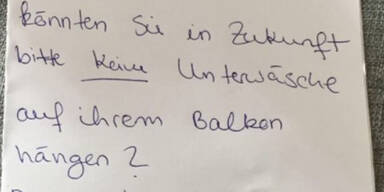 könnten Sie in Zukunft
bitte keine Unterwäsche
auf ihrem Balkon
hängen?